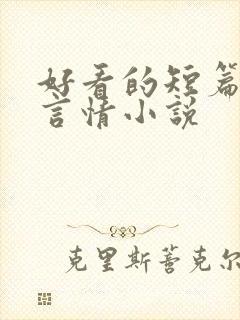 好看的短篇
言情小说
克里斯蒂克尔